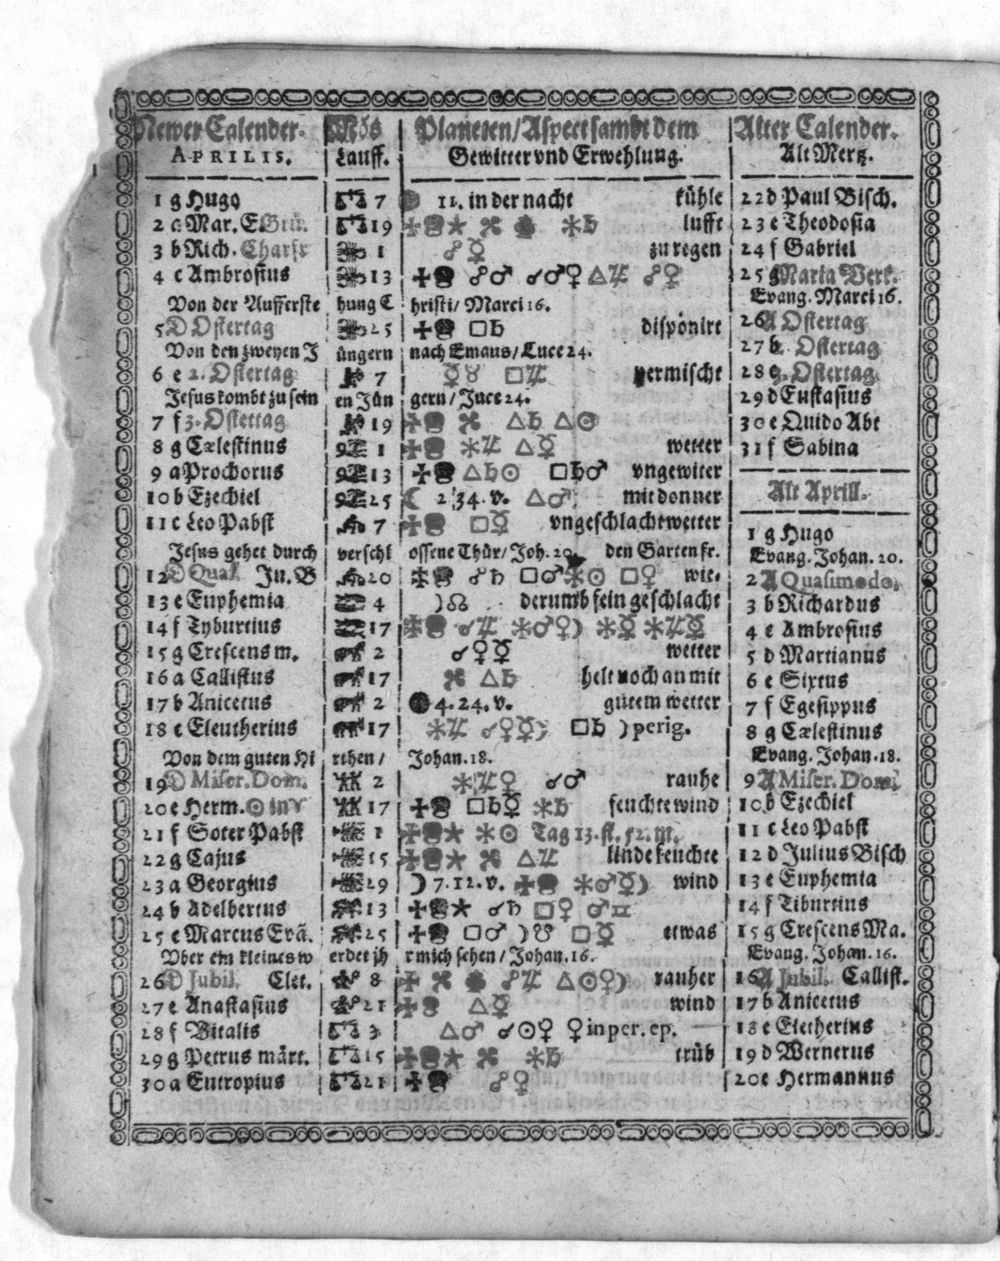 Newer Calender. Mõs Planeten/Aspect sambt dem Alter Calender.
APRILIS. Lauff. Gewitter vnd Erwehlung. Alt Mertz.
1 g Hugo 7 11. in der nacht kühle 22 d Paul Bisch.
2 a Mar. E. Grü. 19 ✠ ⚹♄ lufft 23 e Theodosia
3 b Rich. Charfr 1 ☍☿ zu regen 24 f Gabriel
4 c Ambrosius 13 ✠ ☍♂ ☌♂♀ △♃ ☍♀ 25 g Maria Verk.
Von der Aufferste hung C hristi/ Marci 16. Evang. Marci 16.
5 D Ostertag 25 ✠ □♄ disponirt 26 A Ostertag
Von den zweyen J üngern nach Emaus/ Luce 24. 27 b Ostertag
6 e 2. Ostertag 7 ☿♉ □♃ vermischt 28 c Ostertag
Jesus kombt zu sein en Jün gern/ Juce 24. 29 d Eustasius
7 f 3. Ostertag 19 ✠ △♄ △☉ 30 e Quido Abt
8 g Cælestinus 1 ✠ ⚹♃ △☿ wetter 31 f Sabina
9 a Prochorus 13 ✠ △♄☉ □♄♂ vngewiter
10 b Ezechiel 25 ☾ 2. 34. v. △♂ mit donner Alt Aprill.
11 c Leo Pabst 7 ✠ □☿ vngeschlacht wetter 1 g Hugo
Jesus gehet durch verschl ossene Thür/ Joh. 20. den Garten fr. Evang. Johan. 20.
12 D Qual. Ju. B 20 ☍♄ □♂ ⚹☉ □♀ wie. 2 A Quasimodo.
13 e Euphemia 4 ☽☊ derumb sein geschlacht 3 b Richardus
14 f Tyburtius 17 ✠ ☌♃ ⚹♂♀☽ ⚹☿ ⚹♃☿ 4 c Ambrosius
15 g Crescens m. 2 ☌♀☿ wetter 5 d Martianus
16 a Callistus 17 △♄ helt noch an mit 6 e Sixtus
17 b Anicetus 2 4. 24. v. gutem wetter 7 f Egesippus
18 c Eleutherius 17 ⚹♃ ☌♀☿☽ □♄ ☽perig. 8 g Cælestinus
Von dem guten Hi rthen/ Johan. 18. Evang. Johan. 18.
19 D Miser. Dom. 2 ⚹♃♀ ☌♂ rauhe 9 A Miser. Dom.
20 e Herm. ☉ in ♈ 17 ✠ □♄☿ ⚹♄ feuchte wind 10 b Ezechiel
21 f Soter Pabst 1 ✠ ⚹☉ Tag 13. st. 52. m. 11 c Leo Pabst
22 g Cajus 15 ✠ △♃ linde feuchte 12 d Julius Bisch
23 a Georgius 29 ☽ 7. 12. v. ✠ ⚹♂☿☽ wind 13 e Euphemia
24 b Adelbertus 13 ✠ ☌♄ □♀ ♂♊ 14 f Tiburtius
25 c Marcus Evã. 25 ✠ □♂ ☽☋ □☿ etwas 15 g Crescens Ma.
Vber ein kleines w erdet jh r mich sehen/ Johan. 16. Evang. Johan. 16.
26 D Jubil. Clet. 8 ✠ ☍♃ △☉♀☽ rauher 16 A Jubil. Callist.
27 e Anastasius 21 ✠ △☿ wind 17 b Anicetus
28 f Vitalis 3 △♂ ☌☉♀ ♀ in per. ep. 18 c Eletherius
29 g Petrus märt. 15 ✠ ⚹♄ trüb 19 d Wernerus
30 a Eutropius 21 ✠ ☍♀ 20 e Hermannus